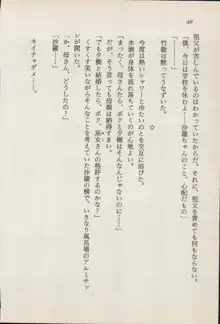 40
祖父が苦しんでいるのはわかっていたからだ。それに、祖父を責めても何もならない。
「僕、今日は学校を休むよ……沙羅ちゃんのこと、心配だもの」
竹数は黙ってうなずいた。
☆
今度は熱いシャワーと冷たいのとを交互に浴びた。
水滴が身体を流れ落ちていくのが心地よい。
「まったく、母さんたら、ボクと夕樹はそんなんじゃないのに……」
夕樹と結婚したら、とっても母親は納得しまい。
「でも……ボク、巫女さんの格好するのかな?」
くすりと笑いながら、つぶやいた沙羅の横で、いきなり風呂場のアルミサッ
シが開いた。
「か、母さん、どうしたの?」
「沙羅……」
キイチャダメー……。